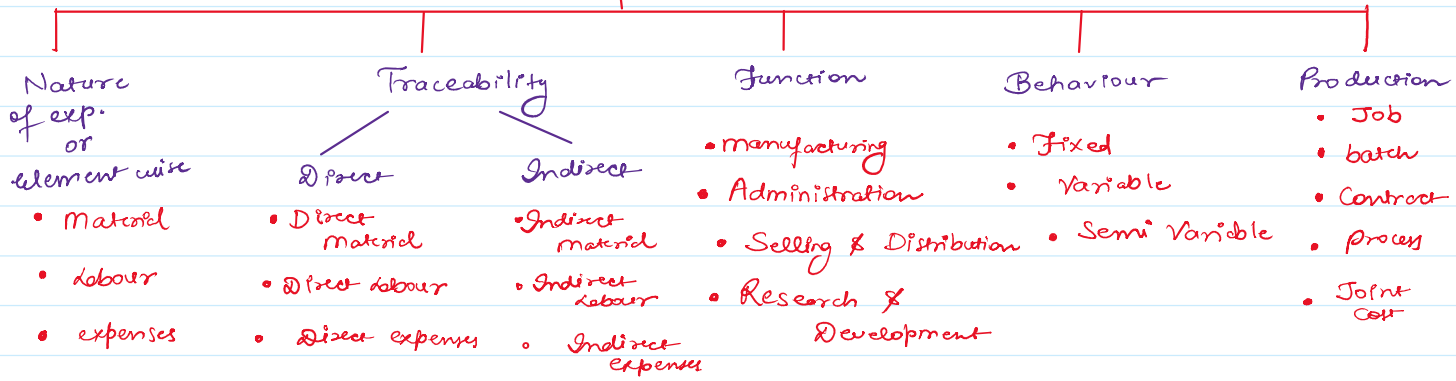 Nature
of exp.
or
element wise
• Material
• Labour
• expenses
Traceability
Direct
• Direct
Material
• Direct Labour
• Direct expenses
Indirect
• Indirect
material
• Indirect
Labour
• Indirect
expenses
Function
• manufacturing
• Administration
• Selling & Distribution
• Research &
Development
Behaviour
• Fixed
• Variable
• Semi Variable
Production
• Job
• batch
• Contract
• process
• Joint
Cost